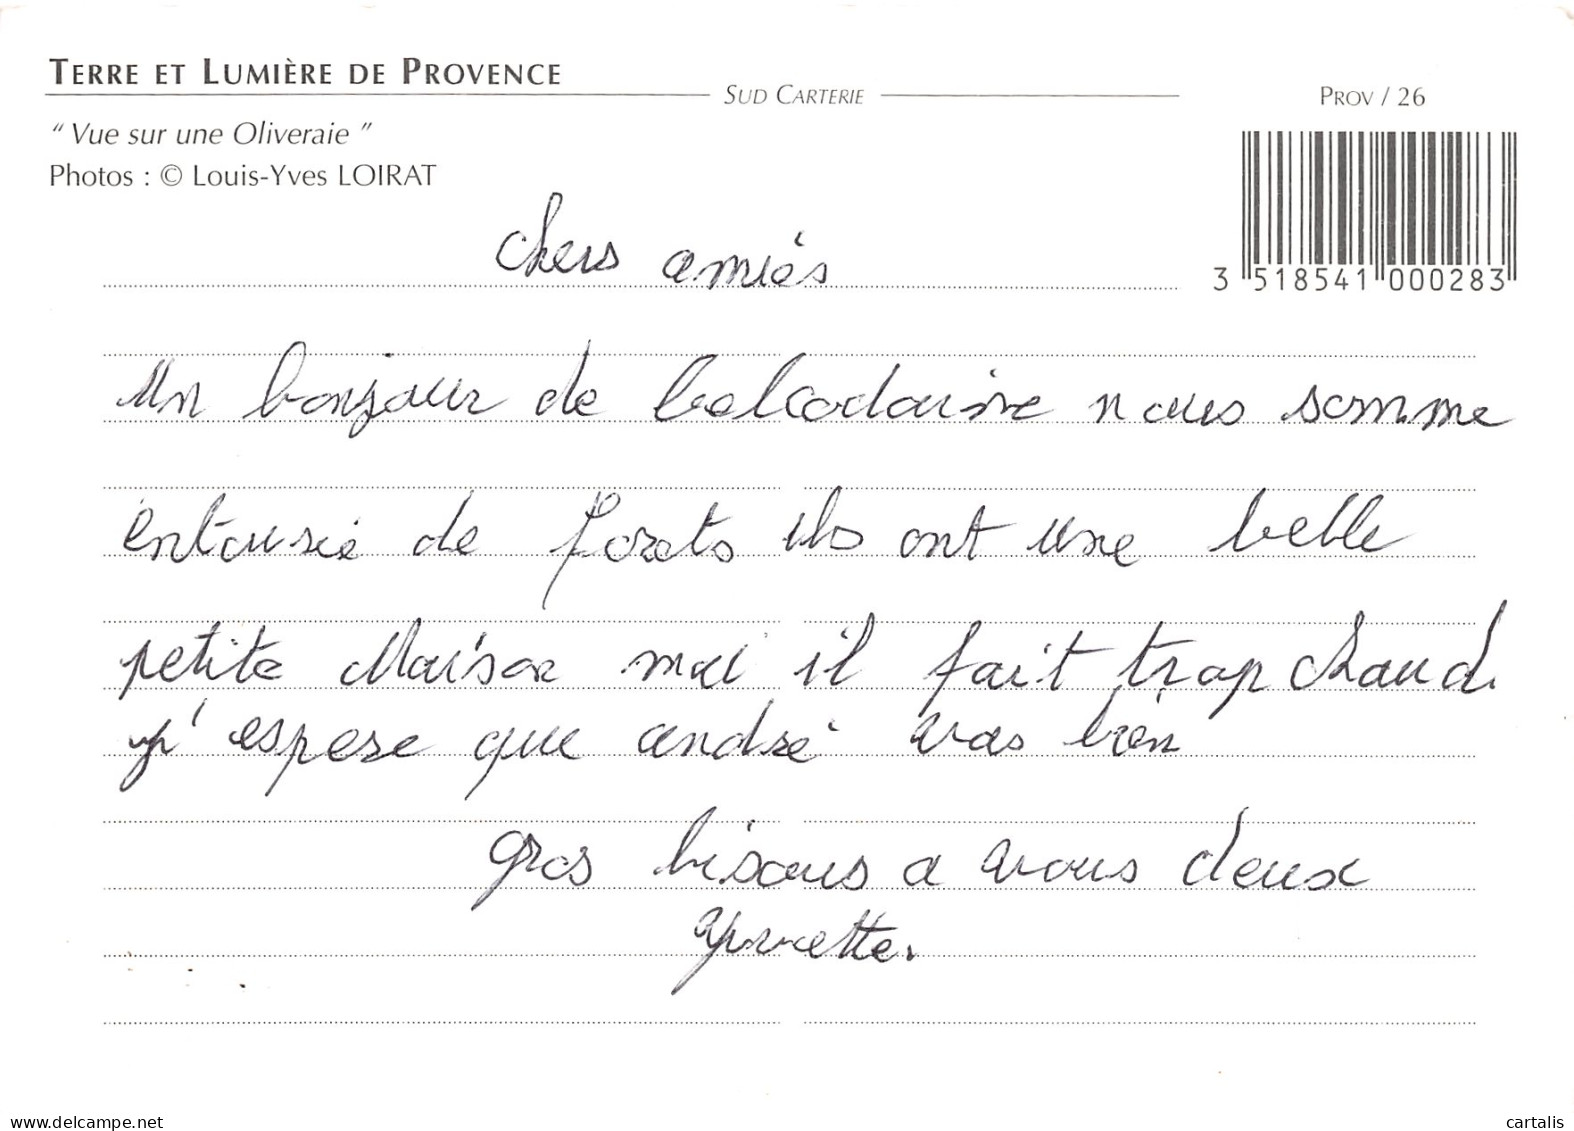 TERRE ET LUMIÈRE DE PROVENCE
SUD CARTERIE
PROV / 26
" Vue sur une Oliveraie "
Photos : © Louis-Yves LOIRAT
3 518541 000283
chers amiés
un bonjour de belcodaine nous somme
entourié de forets ils ont une belle
petite Maison mai il fait trop chaud.
j'espere que andré vas bien
gros bisous a vous deux
yvette.
www.delcampe.net
cartalis